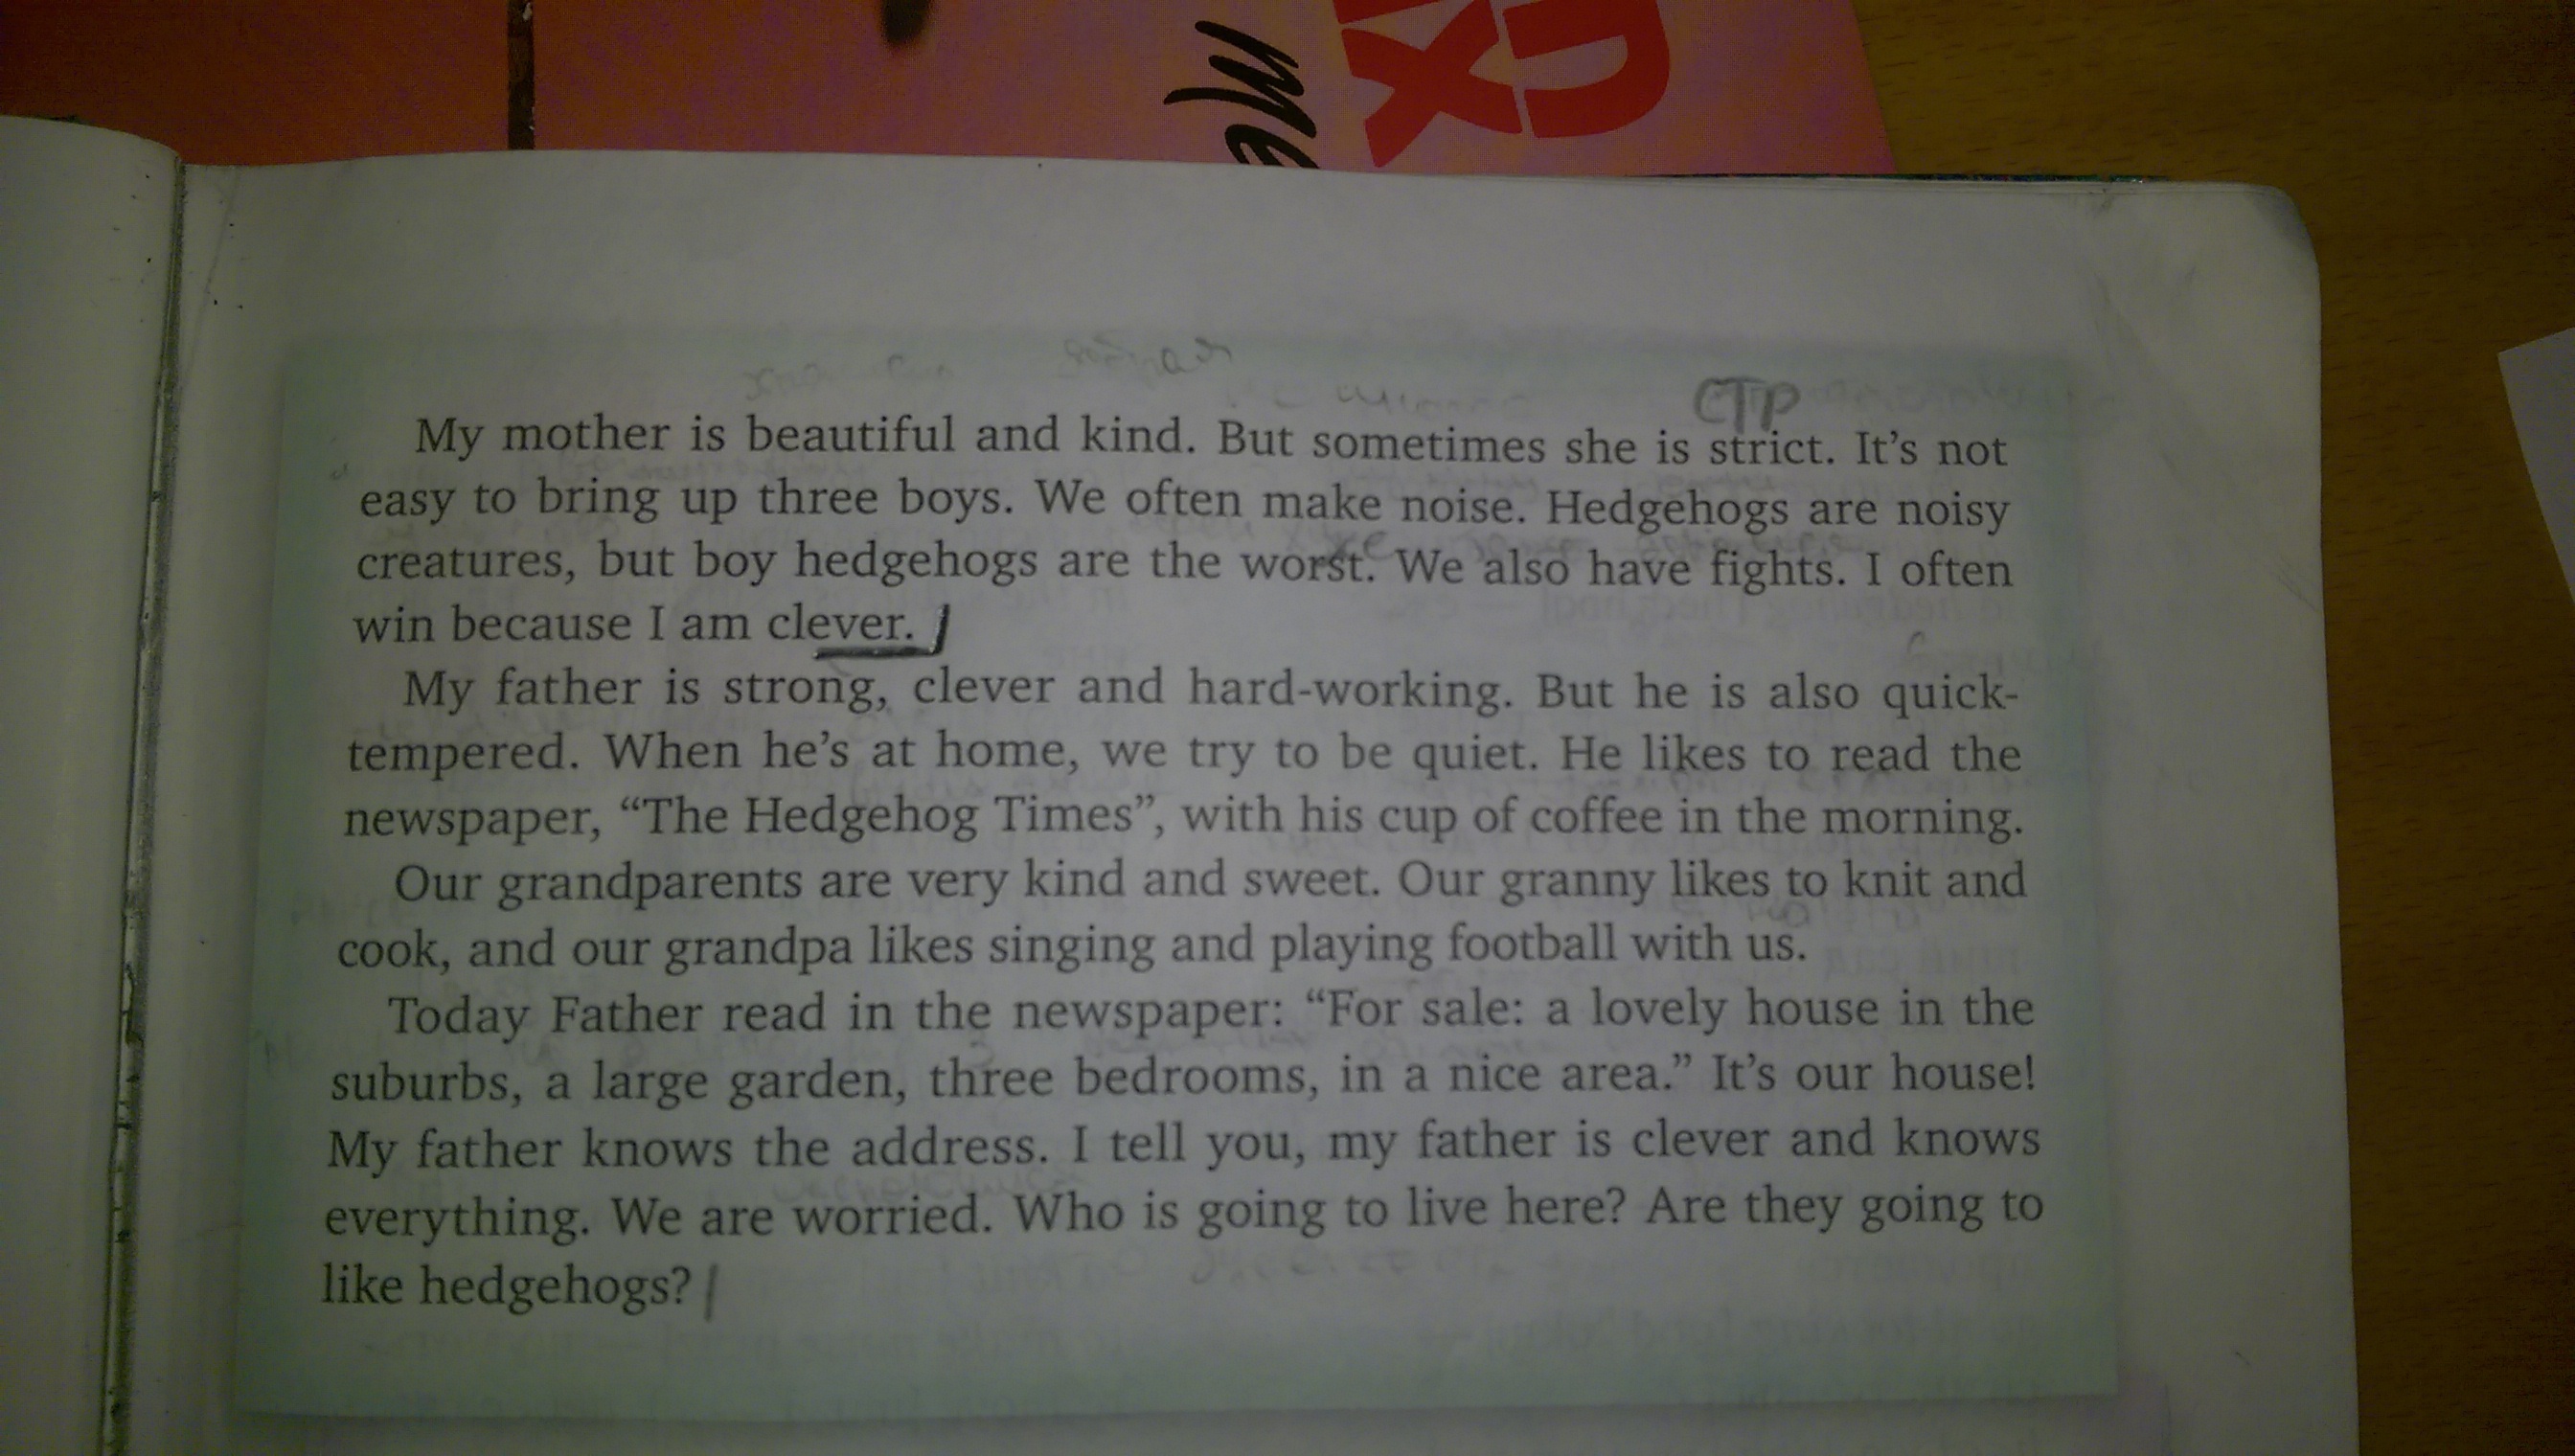 me
СТР
My mother is beautiful and kind. But sometimes she is strict. It's not
easy to bring up three boys. We often make noise. Hedgehogs are noisy
creatures, but boy hedgehogs are the worst. We also have fights. I often
win because I am clever.
My father is strong, clever and hard-working. But he is also quick-
tempered. When he's at home, we try to be quiet. He likes to read the
newspaper, “The Hedgehog Times”, with his cup of coffee in the morning.
Our grandparents are very kind and sweet. Our granny likes to knit and
cook, and our grandpa likes singing and playing football with us.
Today Father read in the newspaper: “For sale: a lovely house in the
suburbs, a large garden, three bedrooms, in a nice area.” It's our house!
My father knows the address. I tell you, my father is clever and knows
everything. We are worried. Who is going to live here? Are they going to
like hedgehogs?